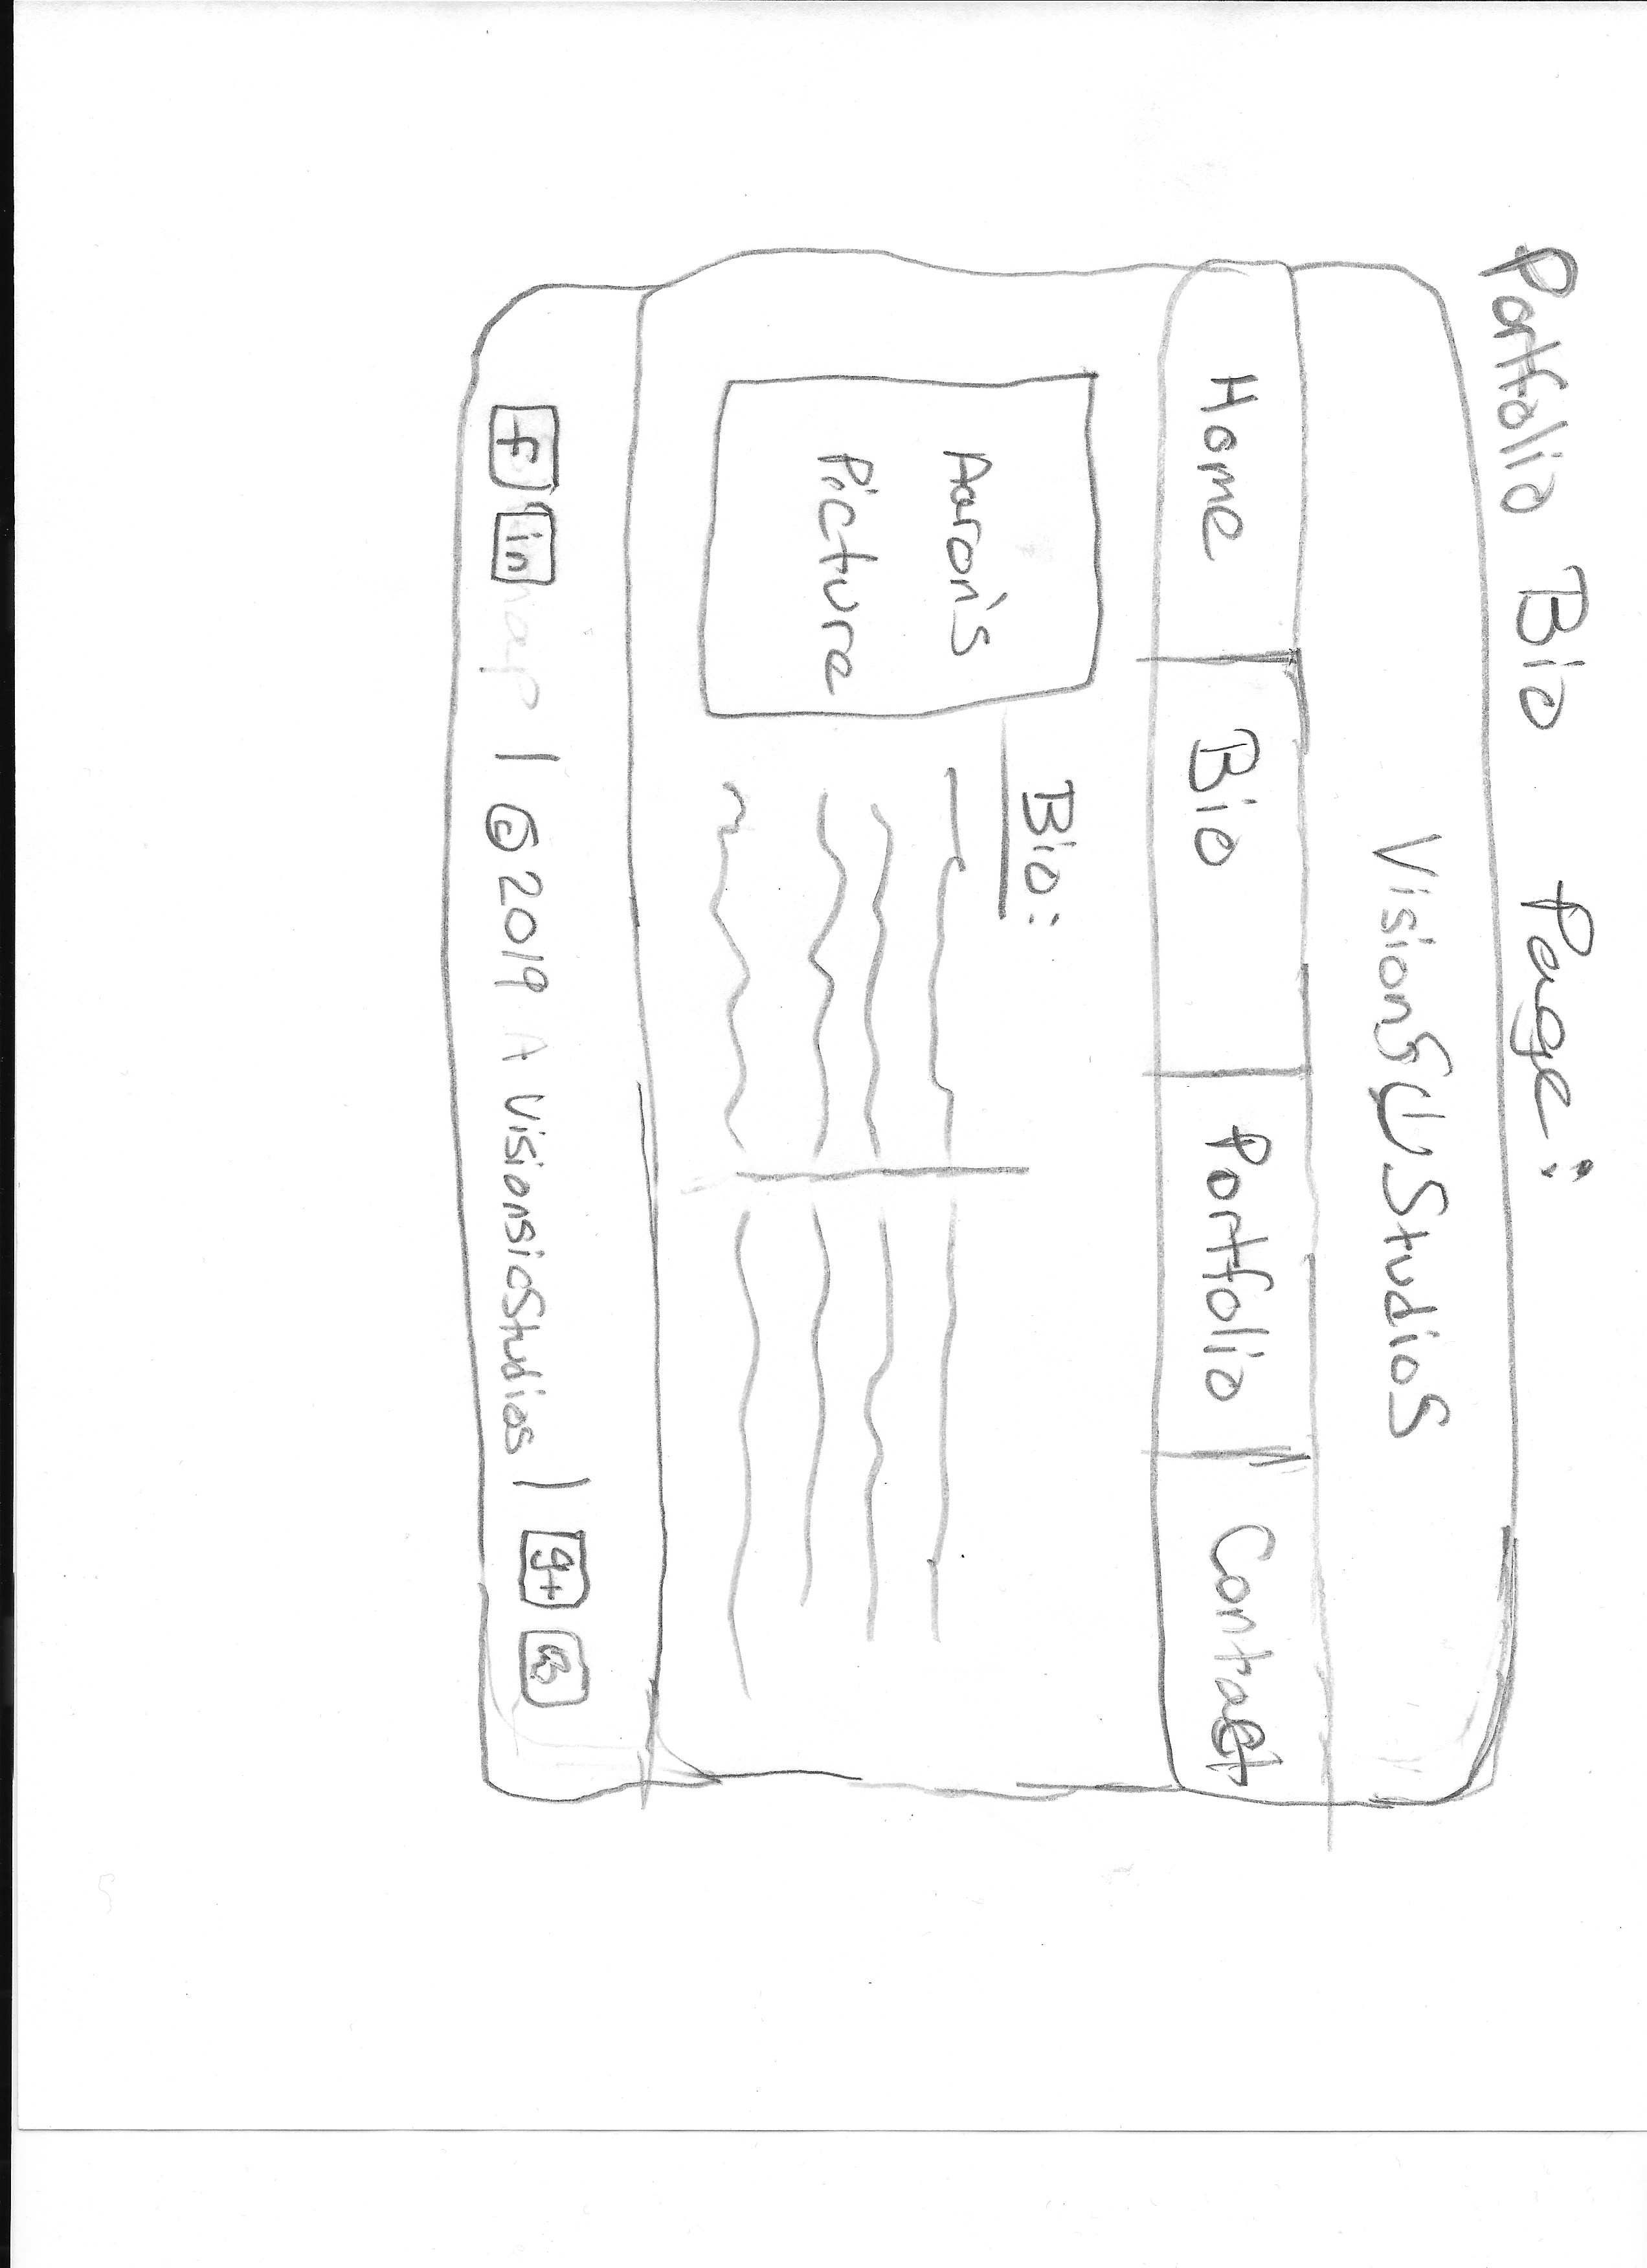 Portfolio Bio Page:
Home
Bio
Portfolio
Contact
Aaron's
Picture
Bio:
f in | © 2019 A VisionsioStudios | g+